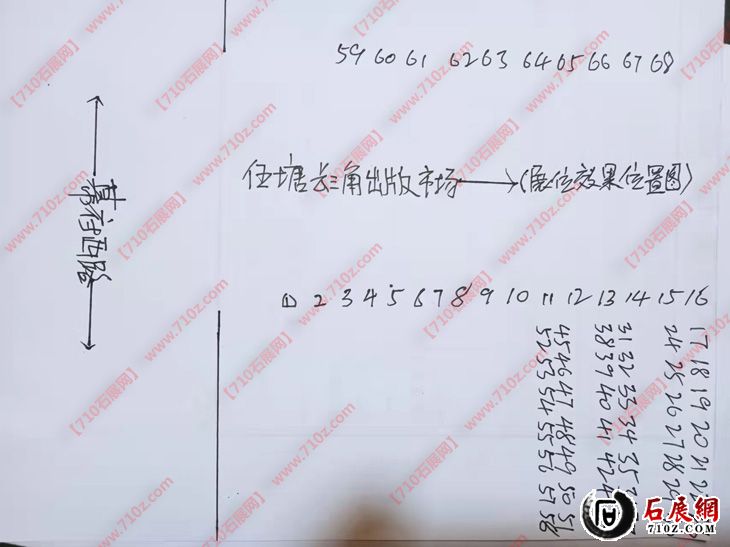 59 60 61 62 63 64 65 66 67 68
伍塘长三角出版市场
(展位效果位置图)
幕府西路
1 2 3 4 5 6 7 8 9 10 11 12 13 14 15 16
17 18 19 20 21
24 25 26 27 28
31 32 33 34 35
38 39 40 41 42
45 46 47 48 49 50 51
52 53 54 55 56 57
【710石展网】
www.710z.com
石展網
710Z.COM